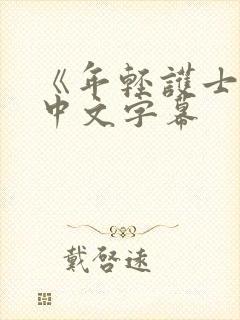 《年轻護士
中文字幕
戴啓遠